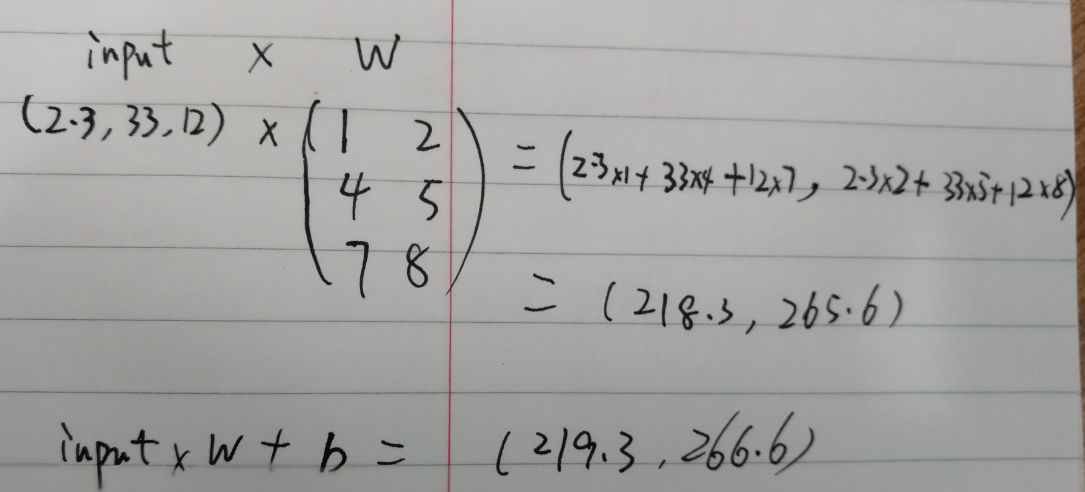 input × W
(2.3, 33, 12) × (1 2
4 5
7 8) = (2.3×1+ 33×4 +12×7, 2.3×2+ 33×5+12×8)
= (218.3, 265.6)
input × W + b = (219.3, 266.6)